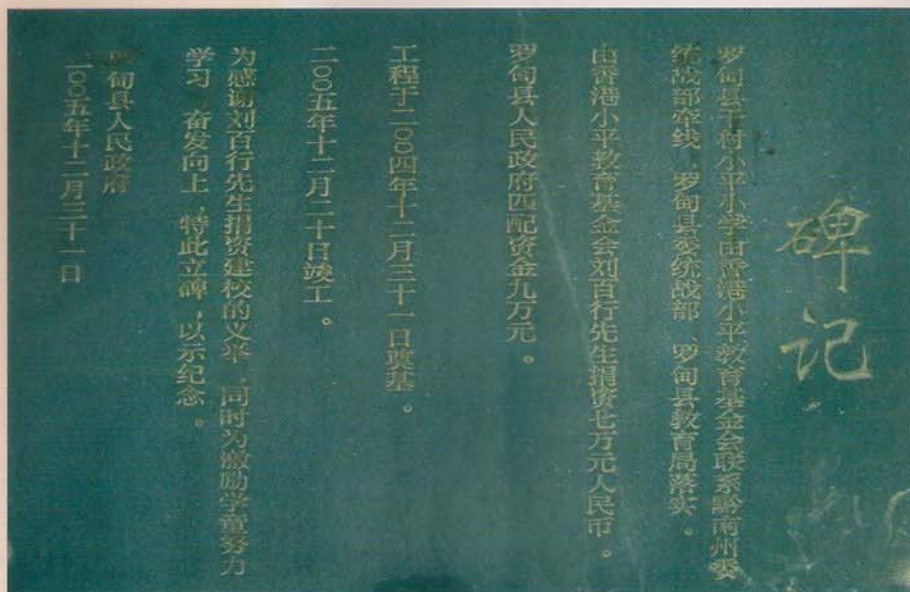 碑记
罗甸县干村小平小学由香港小平教育基金会联系黔南州委
统战部牵线、罗甸县委统战部、罗甸县教育局落实。
由香港小平教育基金会刘百行先生捐资七万元人民币。
罗甸县人民政府匹配资金九万元。
工程于二〇〇四年十二月三十一日奠基。
二〇〇五年十二月二十日竣工。
为感谢刘百行先生捐资建校的义举，同时为激励学童努力
学习、奋发向上，特此立碑，以示纪念。
罗甸县人民政府
二〇〇五年十二月三十一日